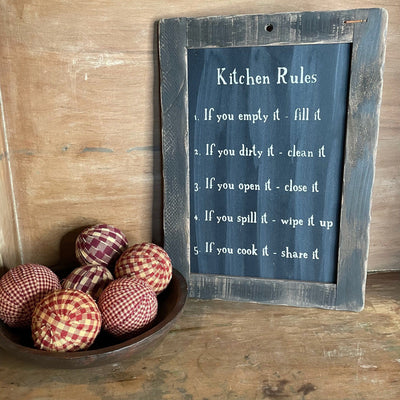 Kitchen Rules
1. If you empty it - fill it
2. If you dirty it - clean it
3. If you open it - close it
4. If you spill it - wipe it up
5. If you cook it - share it